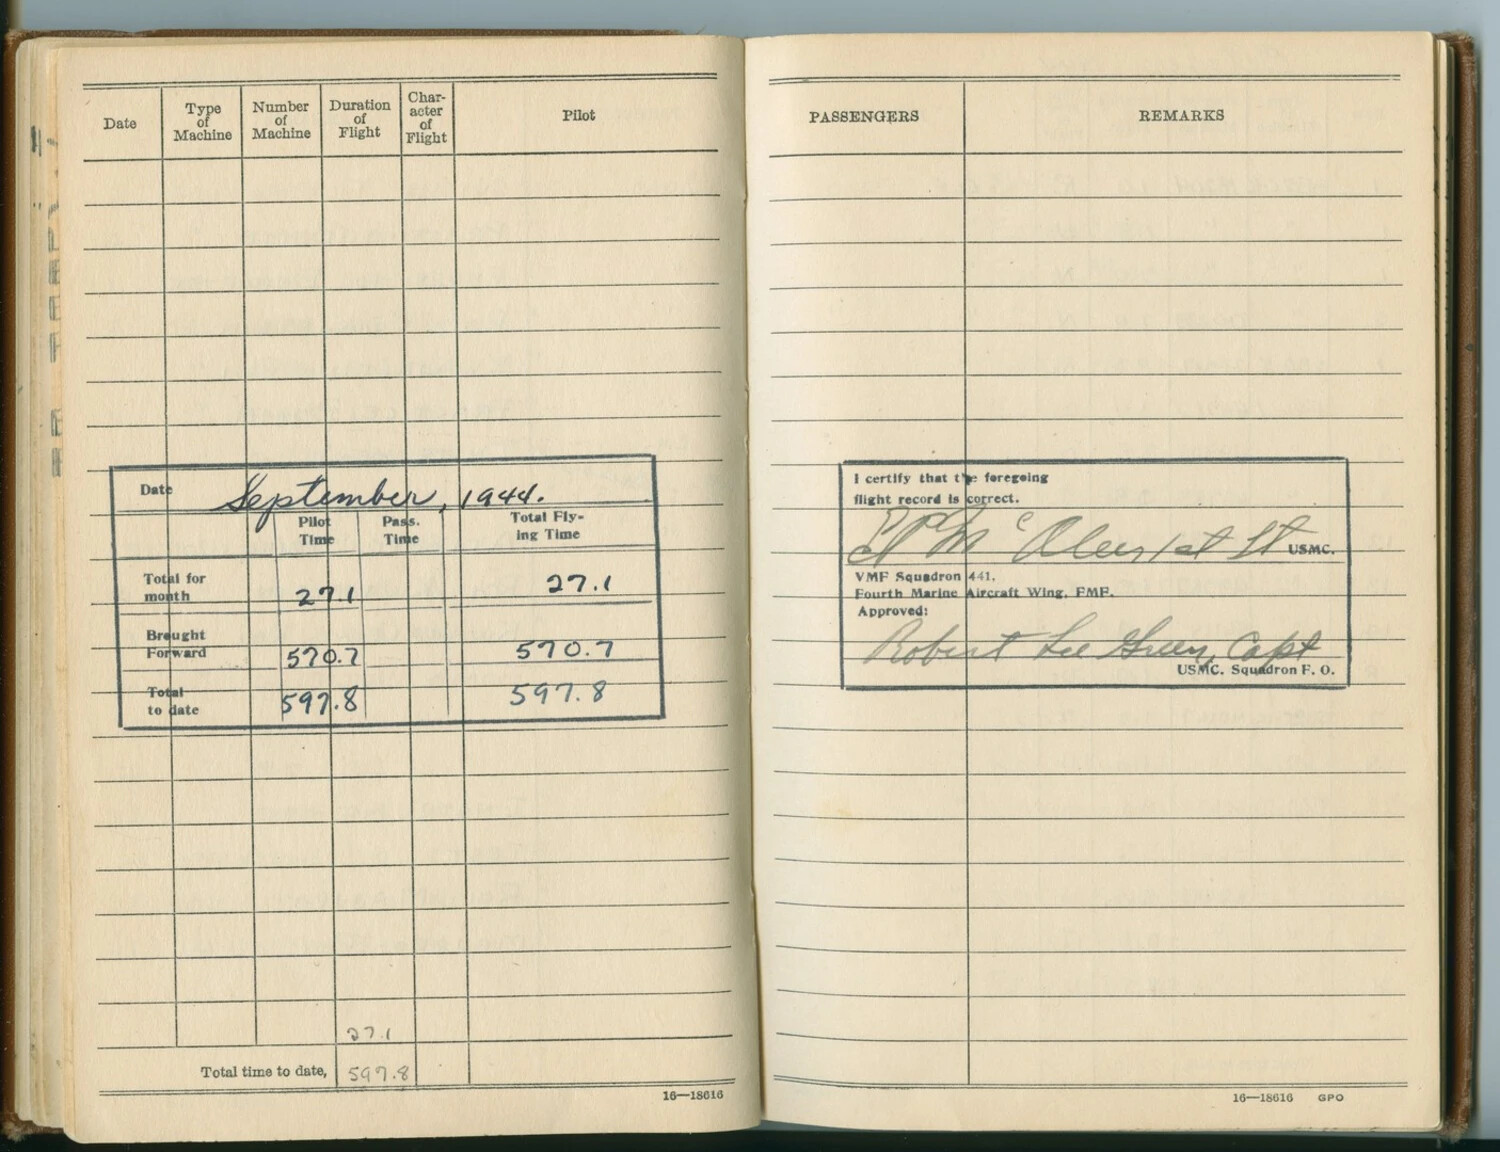 Date
Type of Machine
Number of Machine
Duration of Flight
Char-acter of Flight
Pilot
Date September, 1944.
Pilot Time
Pass. Time
Total Fly-ing Time
Total for month 27.1 27.1
Brought Forward 570.7 570.7
Total to date 597.8 597.8
27.1
Total time to date, 597.8
16—18616
PASSENGERS
REMARKS
I certify that the foregoing
flight record is correct.
1st Lt USMC.
VMF Squadron 441,
Fourth Marine Aircraft Wing, FMF.
Approved:
Robert Lee Green, Capt
USMC. Squadron F. O.
16—18616 GPO